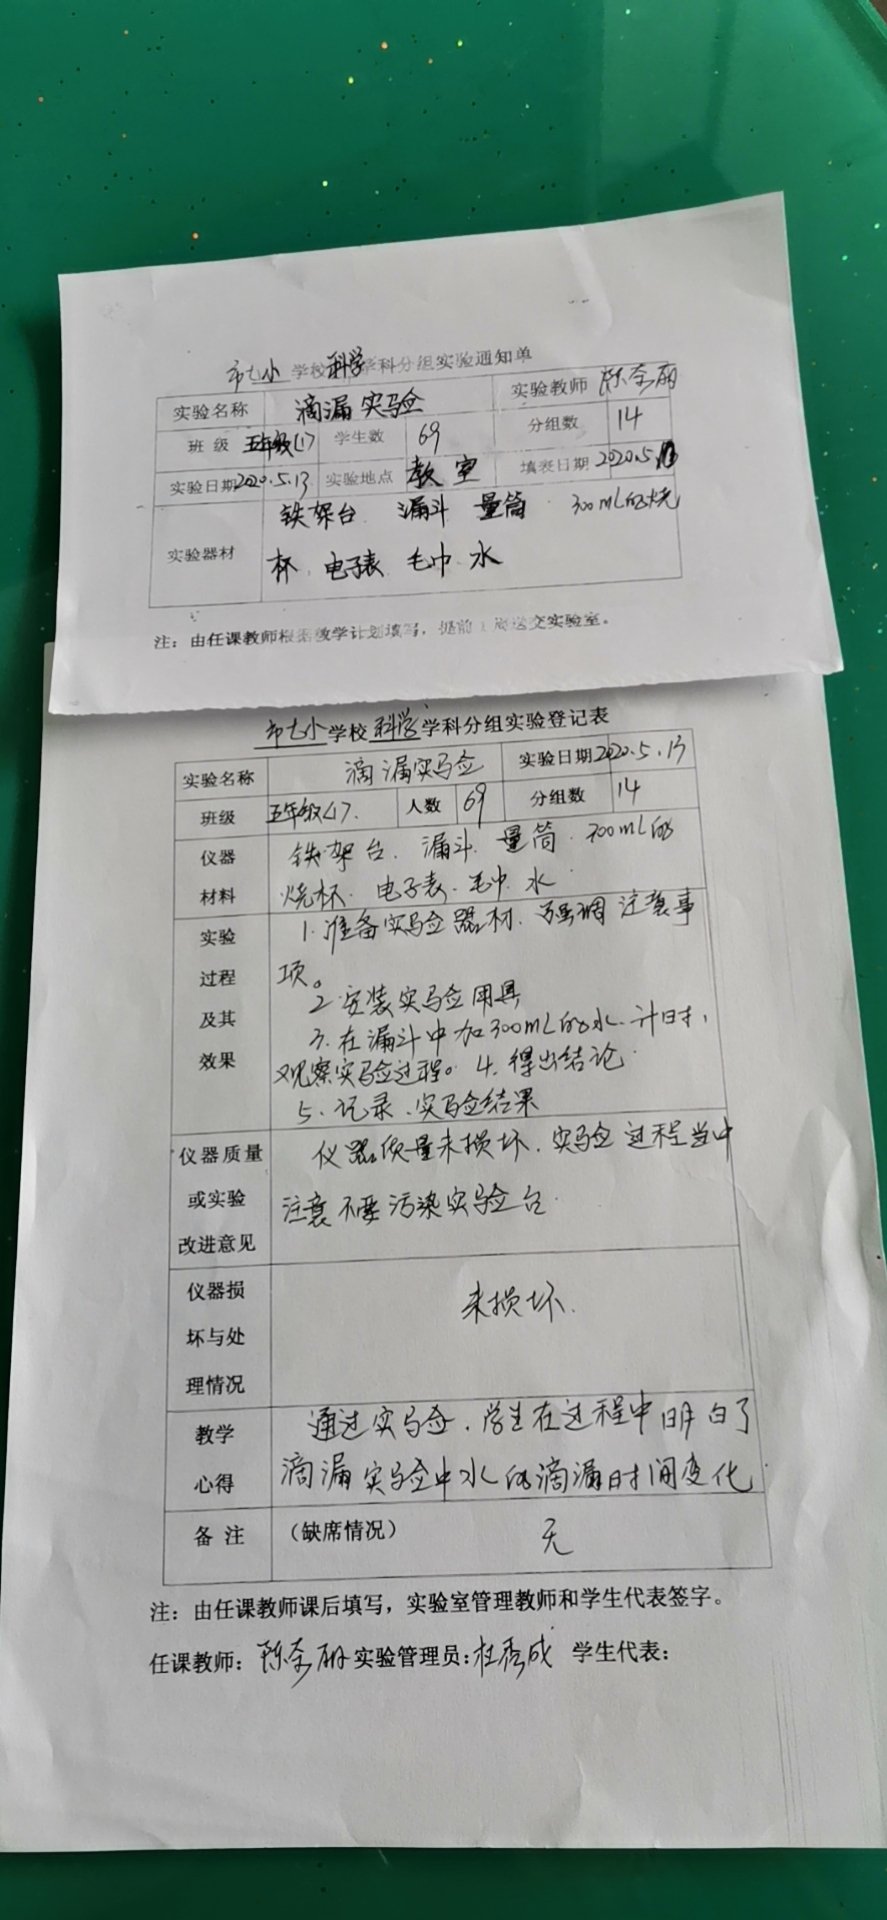 市七小 学校 科学 学科分组实验通知单
实验名称 滴漏实验 实验教师
班 级 五年级(1) 学生数 69 分组数 14
实验日期 2020.5.13 实验地点 教室 填表日期 2020.5
实验器材 铁架台 漏斗 量筒 300mL的烧
杯 电子表 毛巾 水
注：由任课教师根据教学计划填写，提前1周送交实验室。
市七小 学校 科学 学科分组实验登记表
实验名称 滴漏实验 实验日期 2020.5.13
班级 五年级(1) 人数 69 分组数 14
仪器 铁架台、漏斗、量筒、300mL的
材料 烧杯、电子表、毛巾、水
实验 1.准备实验器材、强调注意事
过程 项。
2.安装实验用具
及其 3.在漏斗中加300mL的水、计时，
效果 观察实验过程。4.得出结论
5.记录、实验结果
仪器质量 仪器质量未损坏、实验过程当中
或实验 注意不要污染实验台
改进意见
仪器损 未损坏.
坏与处
理情况
教学 通过实验、学生在过程中明白了
心得 滴漏实验中水的滴漏时间变化
备 注 （缺席情况） 无
注：由任课教师课后填写，实验室管理教师和学生代表签字。
任课教师： 实验管理员： 学生代表：